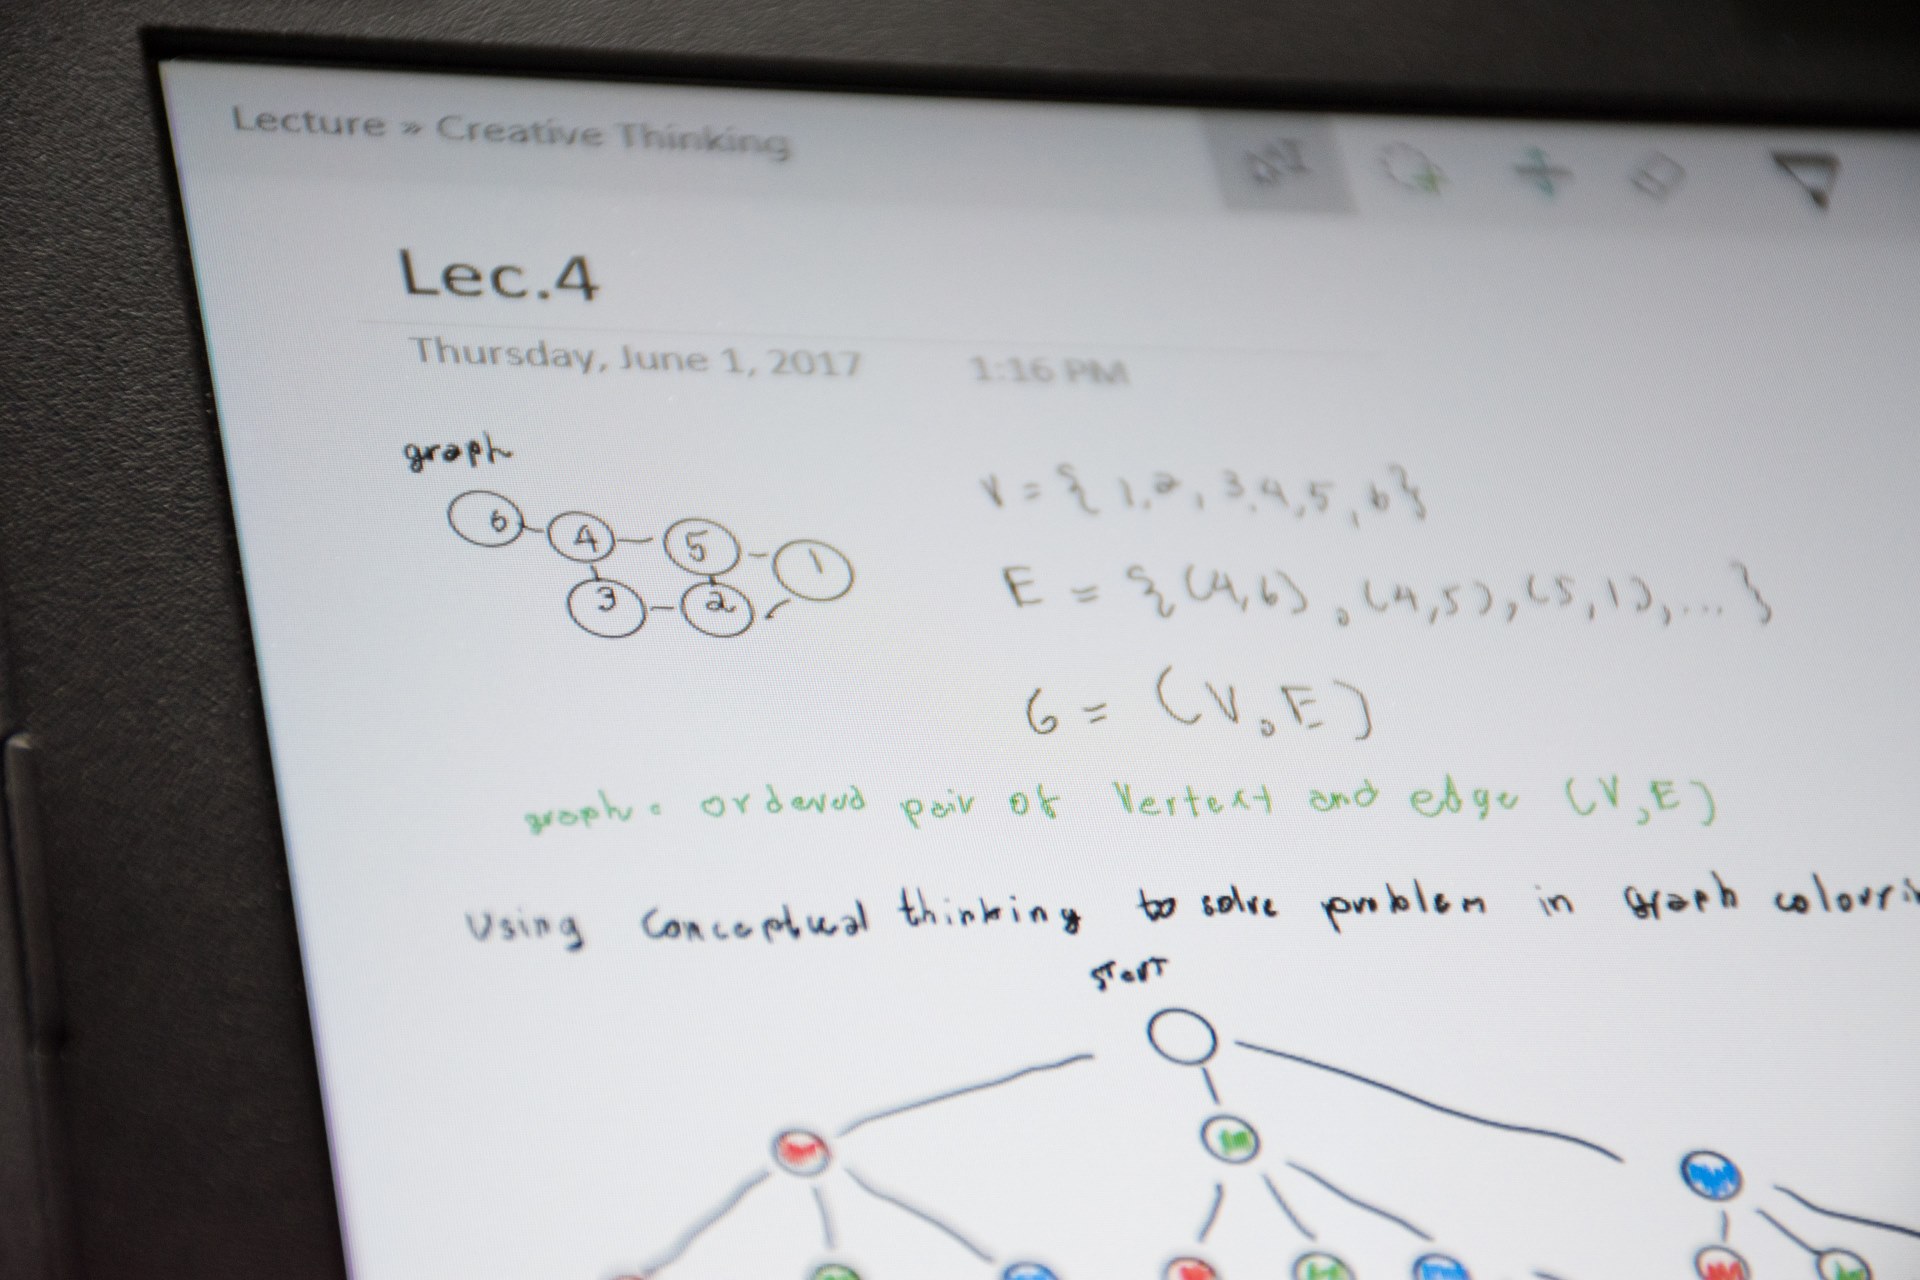 Lecture » Creative Thinking
Lec.4
Thursday, June 1, 2017 1:16 PM
graph
6 4 5 1
3 2
V = { 1,2, 3,4,5,6}
E = {(4,6), (4,5), (5,1), ... }
G = (V,E)
graph = ordered pair of Vertext and edge (V,E)
Using Conceptual thinking to solve problem in graph colouri
start